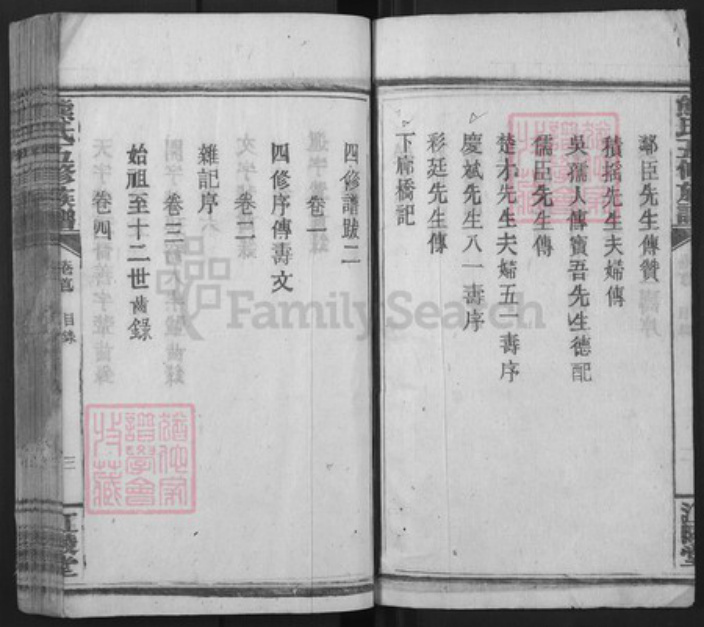 鄰臣先生傳贊
積擣先生夫婦傳
吳孺人傳寶吾先生德配
儒臣先生傳
楚才先生夫婦五一壽序
慶斌先生八一壽序
彩廷先生傳
下廊橋記
四修譜跋二
卷一
四修序傳壽文
卷二
雜記序
卷三
始祖至十二世齒錄
卷四
熊氏五修族譜
卷首 目錄
三
江陵堂
熊氏五修族譜
江陵堂
FamilySearch